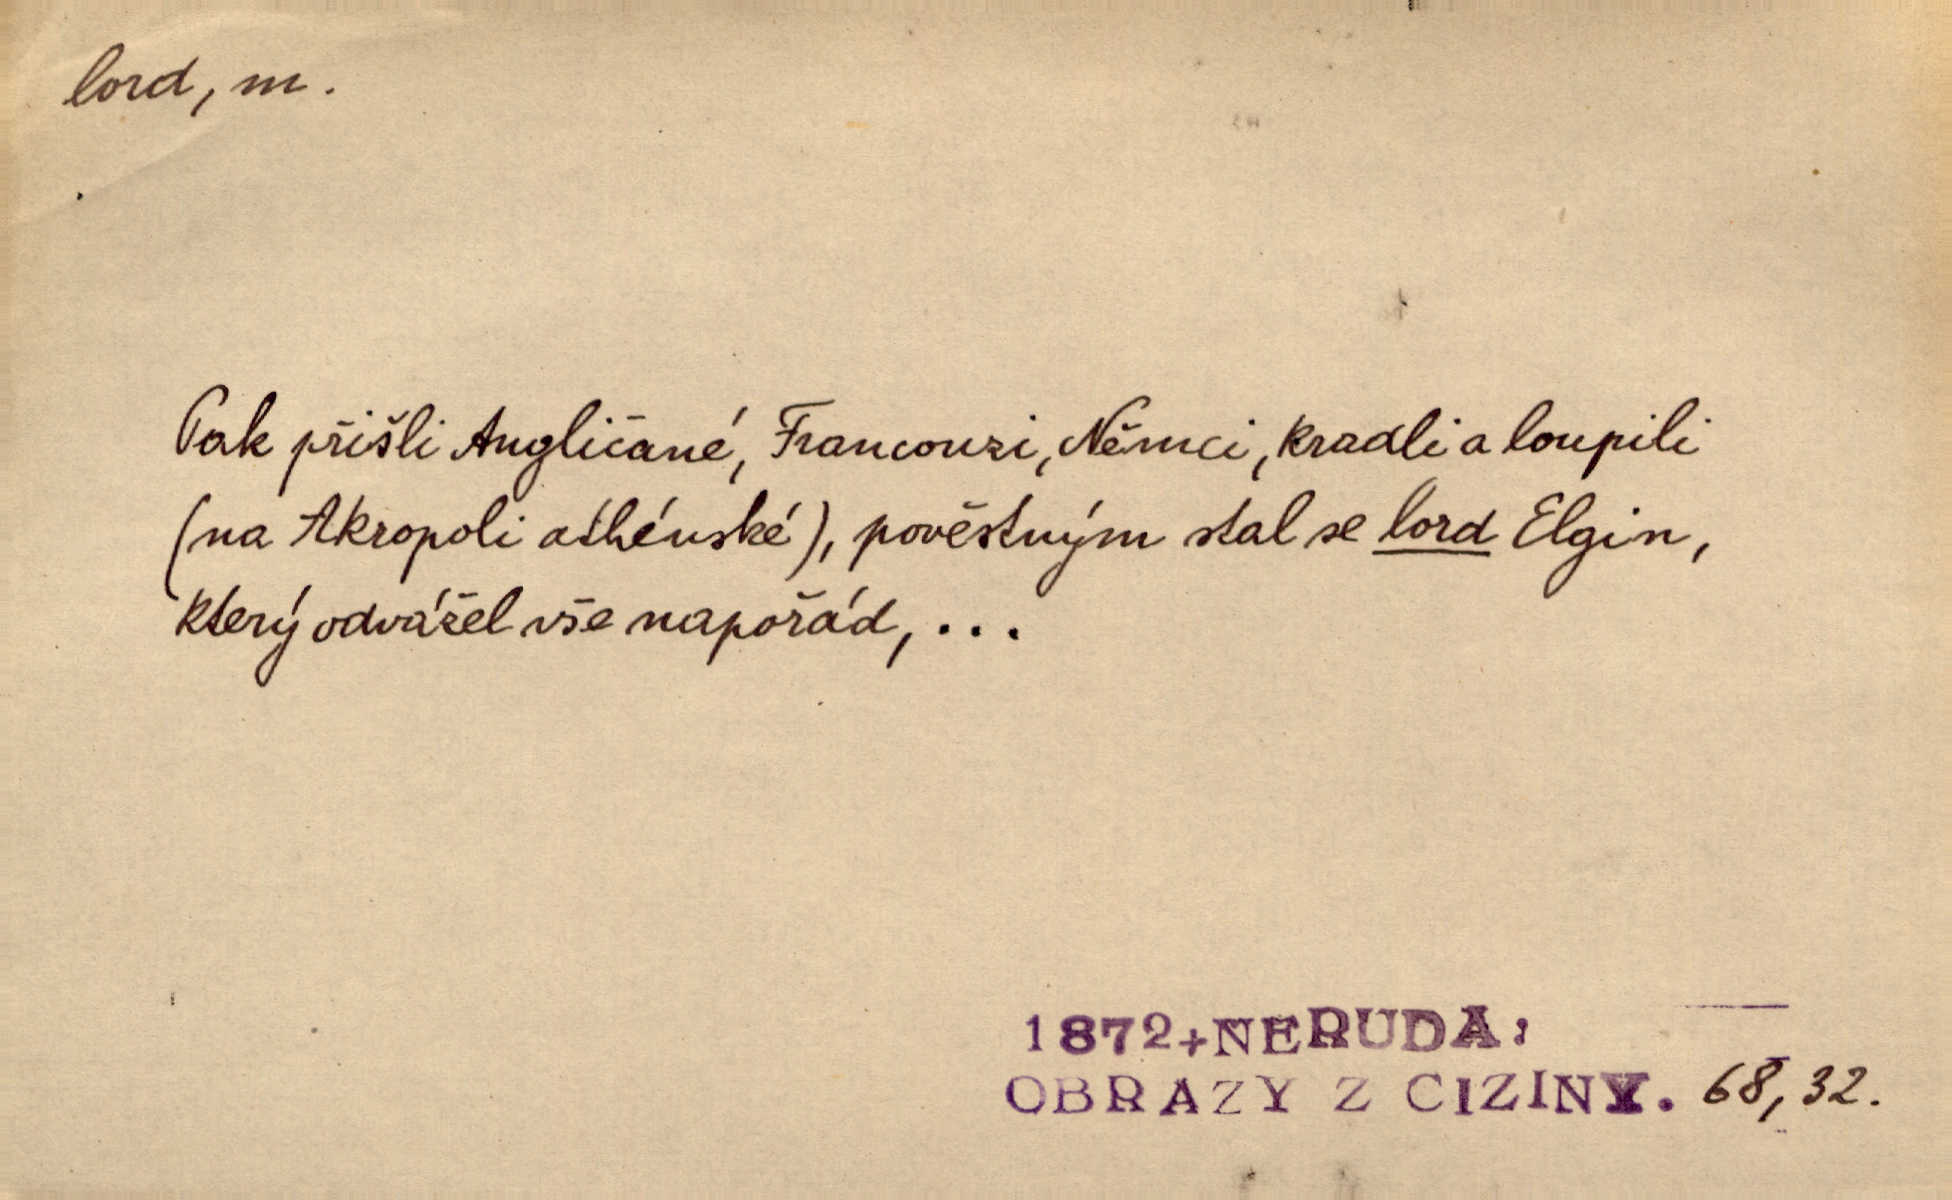 lord, m.
Pak přišli Angličané, Francouzi, Němci, kradli a loupili
(na Akropoli athénské), pověstným stal se lord Elgin,
který odvážel vše napořád, ...
1872+NERUDA:
OBRAZY Z CIZINY. 68, 32.